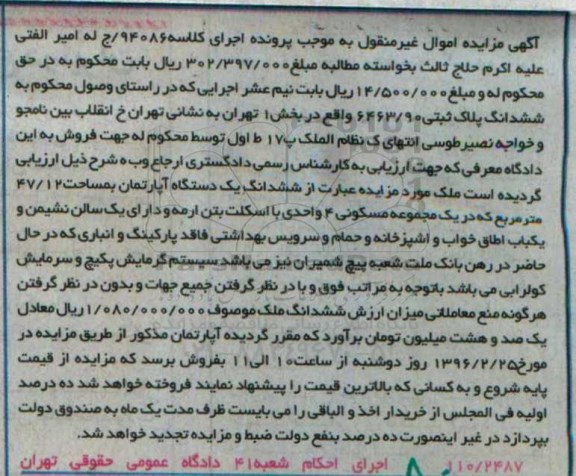 آگهی مزایده اموال غیرمنقول به موجب پرونده اجرای کلاسه۹۴۰۸۶/ج له امیر الفتی
علیه اکرم حلاج ثالث بخواسته مطالبه مبلغ۳۰۲/۳۹۷/۰۰۰ ریال بابت محکوم به در حق
محکوم له و مبلغ۱۴/۵۰۰/۰۰۰ریال بابت نیم عشر اجرایی که در راستای وصول محکوم به
ششدانگ پلاک ثبتی۶۴۶۳/۹۰ واقع در بخش۱ تهران به نشانی تهران خ انقلاب بین نامجو
و خواجه نصیرطوسی انتهای ک نظام الملک پ۱۷ ط اول توسط محکوم له جهت فروش به این
دادگاه معرفی که جهت ارزیابی به کارشناس رسمی دادگستری ارجاع و ب ه شرح ذیل ارزیابی
گردیده است ملک مورد مزایده عبارت از ششدانگ یک دستگاه آپارتمان بمساحت۴۷/۱۲
متر مربع که در یک مجموعه مسکونی ۴ واحدی با اسکلت بتن ارمه و دارای یک سالن نشیمن و
یکباب اطاق خواب و اشپزخانه و حمام و سرویس بهداشتی فاقد پارکینگ و انباری که در حال
حاضر در رهن بانک ملت شعبه پیچ شمیران نیز می باشد سیستم گرمایش پکیج و سرمایش
کولرابی می باشد باتوجه به مراتب فوق و با در نظر گرفتن جمیع جهات و بدون در نظر گرفتن
هرگونه منع معاملاتی میزان ارزش ششدانگ ملک موصوف ۱/۰۸۰/۰۰۰/۰۰۰ریال معادل
یک صد و هشت میلیون تومان برآورد که مقرر گردیده آپارتمان مذکور از طریق مزایده در
مورخ۱۳۹۶/۲/۲۵ روز دوشنبه از ساعت۱۰ الی۱۱ بفروش برسد که مزایده از قیمت
پایه شروع و به کسانی که بالاترین قیمت را پیشنهاد نمایند فروخته خواهد شد ده درصد
اولیه فی المجلس از خریدار اخذ و الباقی را می بایست ظرف مدت یک ماه به صندوق دولت
بپردازد در غیر اینصورت ده درصد بنفع دولت ضبط و مزایده تجدید خواهد شد.
۱۱۰/۲۴۸۷ اجرای احکام شعبه۴۱ دادگاه عمومی حقوقی تهران